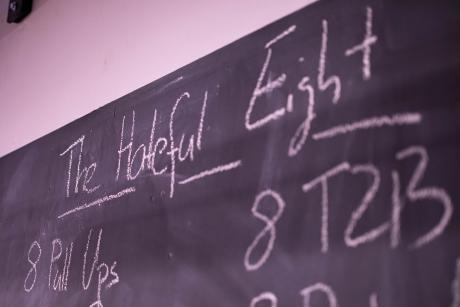 The Hateful Eight
8 Pull Ups
8 T2B